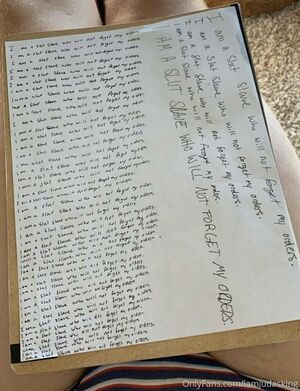 I am a slut slave who will not forget my orders.
I am a slut slave who will not forget my orders.
I am a slut slave who will not forget my orders.
I am a slut slave who will not forget my orders.
I am a slut slave who will not forget my orders.
I am a slut slave who will not forget my orders.
I am a slut slave who will not forget my orders.
I am a slut slave who will not forget my orders.
I am a slut slave who will not forget my orders.
I am a slut slave who will not forget my orders.
I am a slut slave who will not forget my orders.
I am a slut slave who will not forget my orders.
I am a slut slave who will not forget my orders.
I am a slut slave who will not forget my orders.
I am a slut slave who will not forget my orders.
I am a slut slave who will not forget my orders.
I am a slut slave who will not forget my orders.
I am a slut slave who will not forget my orders.
I am a slut slave who will not forget my orders.
I am a slut slave who will not forget my orders.
I am a slut slave who will not forget my orders.
I am a slut slave who will not forget my orders.
I am a slut slave who will not forget my orders.
I am a slut slave who will not forget my orders.
I am a slut slave who will not forget my orders.
I am a slut slave who will not forget my orders.
I am a slut slave who will not forget my orders.
I am a slut slave who will not forget my orders.
I am a slut slave who will not forget my orders.
I am a slut slave who will not forget my orders.
I am a slut slave who will not forget my orders.
I am a slut slave who will not forget my orders.
I am a slut slave who will not forget my orders.
I am a slut slave who will not forget my orders.
I am a slut slave who will not forget my orders.
I am a slut slave who will not forget my orders.
I am a slut slave who will not forget my orders.
I am a slut slave who will not forget my orders.
I am a slut slave who will not forget my orders.
I am a slut slave who will not forget my orders.
I am a slut slave who will not forget my orders.
I AM A SLUT SLAVE WHO WILL NOT FORGET MY ORDERS.
OnlyFans.com/iamjudasking